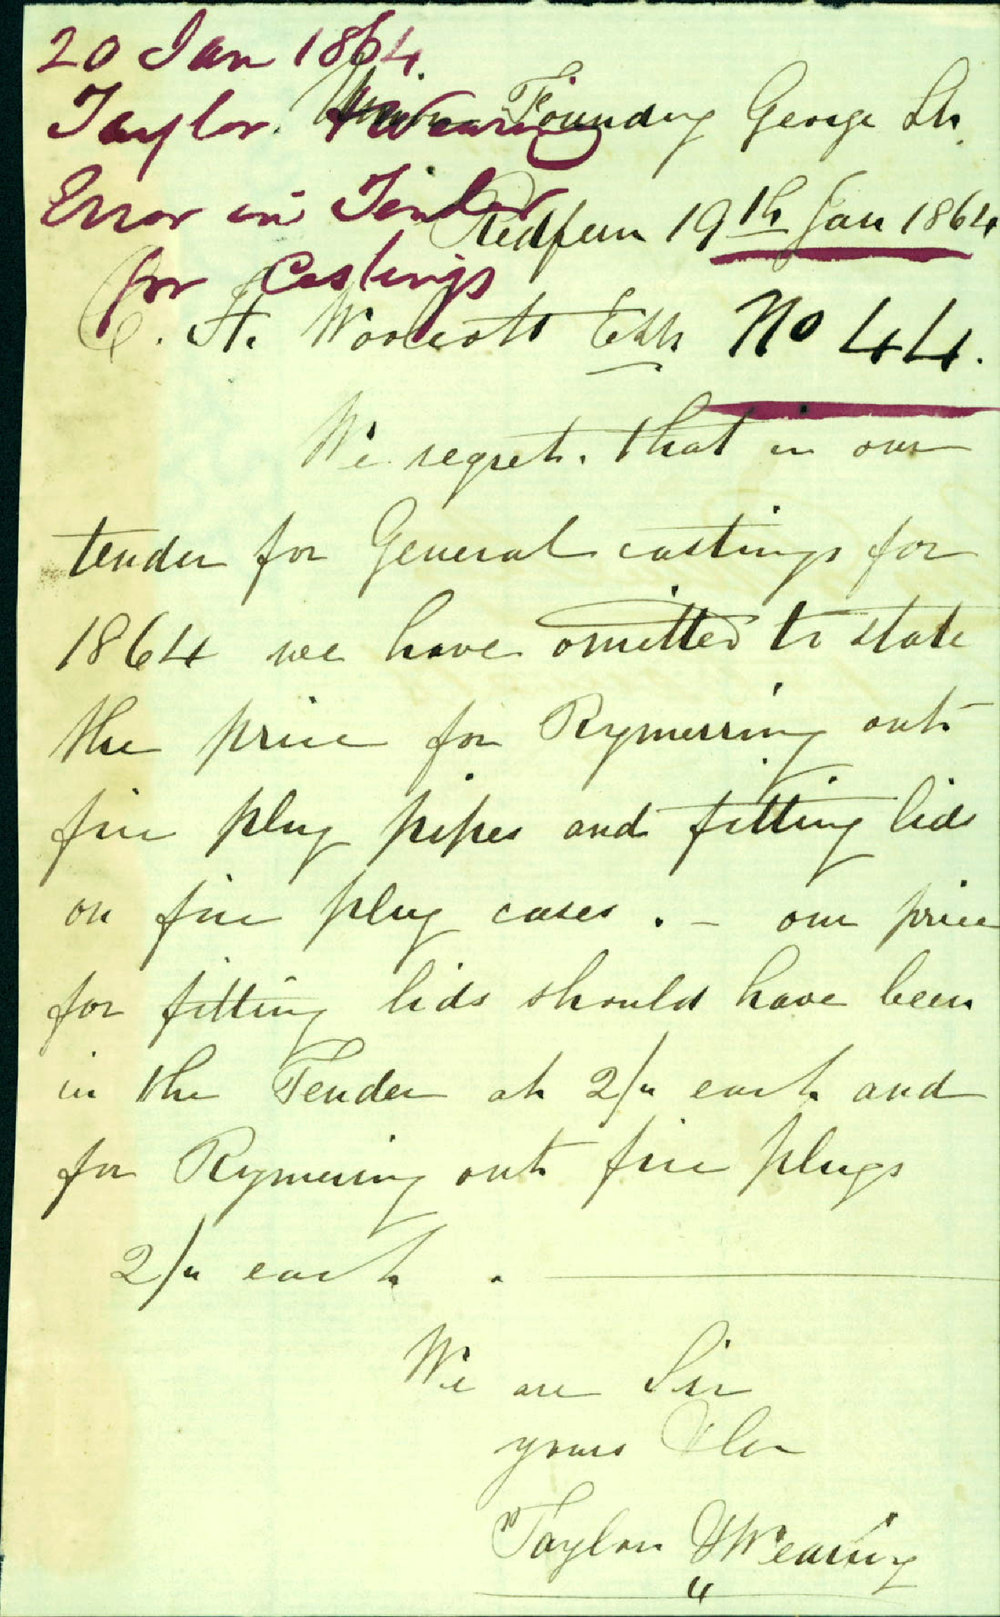 20 Jan 1864
Taylor & Wearing
Error in Tender
for Castings
Union Foundry George St.
Redfern 19th Jan 1864
C. H. Woolcott Esq
No 44.
We regret that in our
tender for General castings for
1864 we have omitted to state
the price for Rymerring out
fire plug pipes and fitting lids
on fire plug cases . - our price
for fitting lids should have been
in the Tender at 2/" each and
for Rymering out fire plugs
2/" each .
We are Sir
yours &c
Taylor & Wearing